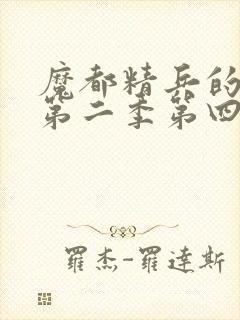 魔都精兵的
第二季第四
羅杰-羅達斯